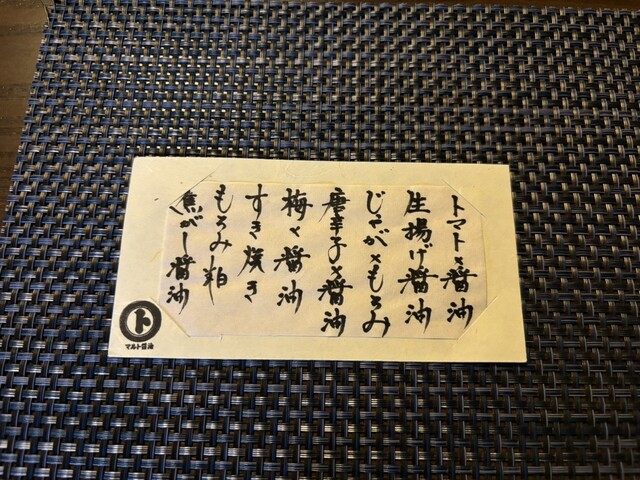 トマト×醤油
生揚げ醤油
じゃが×もろみ
唐辛子×醤油
梅×醤油
すき焼き
もろみ粕
焦がし醤油
ト
マルト醤油